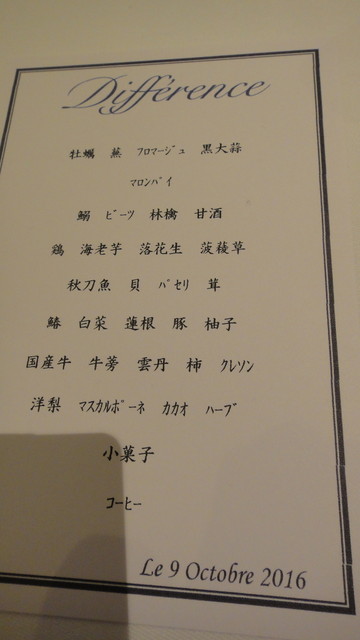 Différence
牡蠣 蕪 ﾌﾛﾏｰｼﾞｭ 黒大蒜
ﾏﾛﾝﾊﾟｲ
鰯 ﾋﾞｰﾂ 林檎 甘酒
鶏 海老芋 落花生 菠薐草
秋刀魚 貝 ﾊﾟｾﾘ 茸
鰆 白菜 蓮根 豚 柚子
国産牛 牛蒡 雲丹 柿 ｸﾚｿﾝ
洋梨 ﾏｽｶﾙﾎﾟｰﾈ ｶｶｵ ﾊｰﾌﾞ
小菓子
ｺｰﾋｰ
Le 9 Octobre 2016